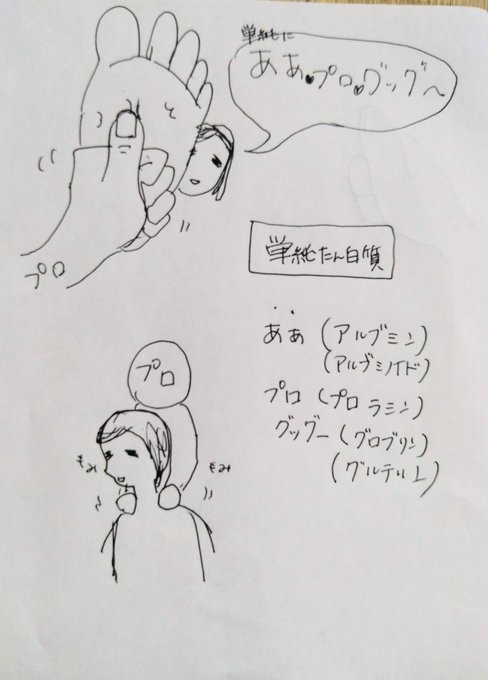 単純に
ああ♥プロ♥グッグ〜
プロ
単純たん白質
ああ(アルブミン)
(アルブミノイド)
プロ(プロラミン)
グッグー(グロブリン)
(グルテリン)
プロ
もみ
もみ